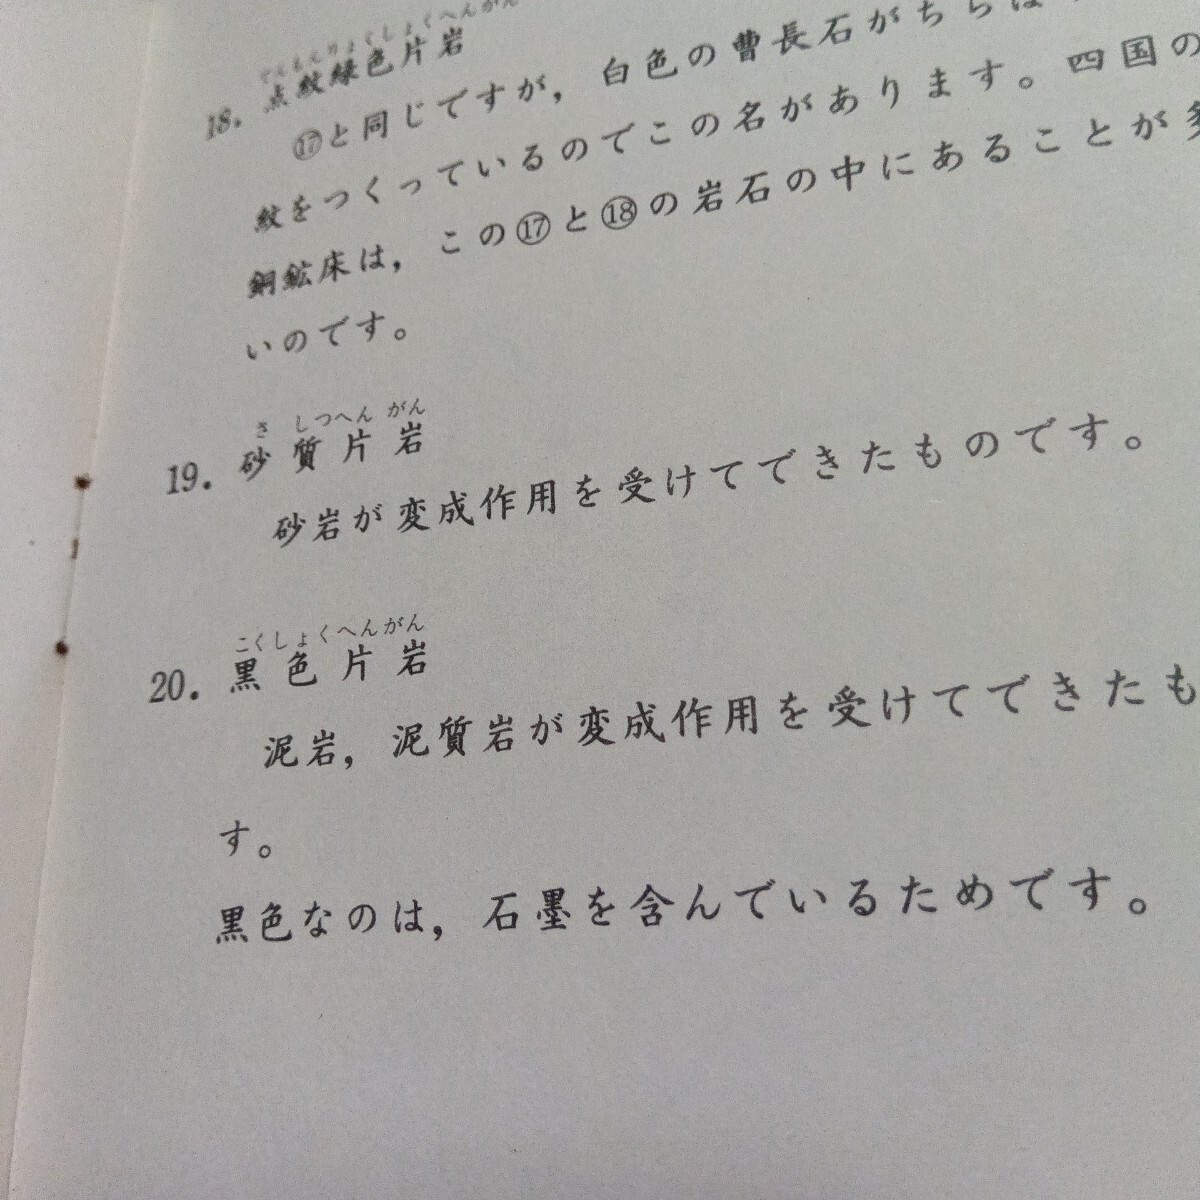 てんもんりょくしょくへんがん
18. 点紋緑色片岩
⑰と同じですが，白色の曹長石がちらば
紋をつくっているのでこの名があります。四国の
銅鉱床は，この⑰と⑱の岩石の中にあることが多
いのです。
さ しつへん がん
19. 砂質片岩
砂岩が変成作用を受けてできたものです。
こくしょくへんがん
20. 黒色片岩
泥岩，泥質岩が変成作用を受けてできたも
す。
黒色なのは，石墨を含んでいるためです。